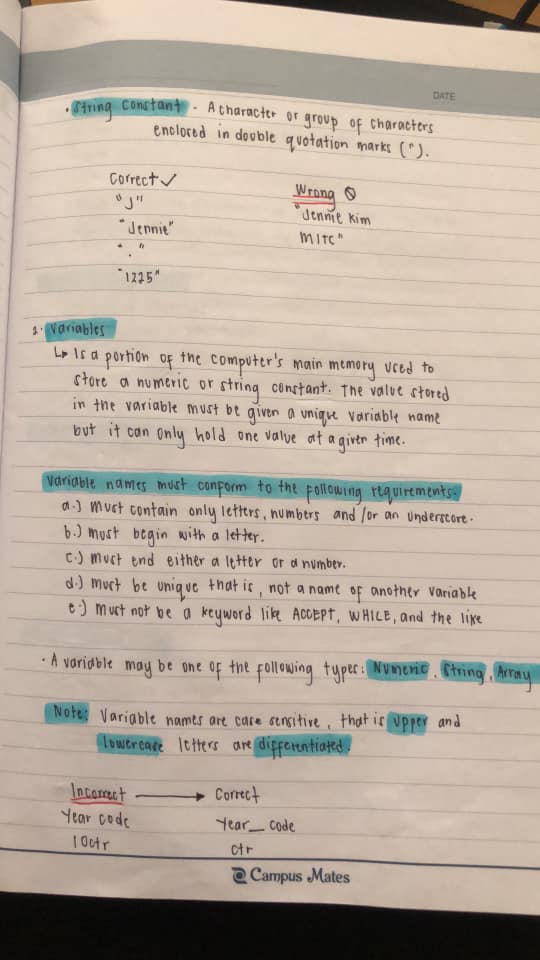 DATE
• String Constant - A character or group of characters
enclosed in double quotation marks (").
Correct ✓
Wrong 🚫
"J"
"Jennie Kim
"Jennie"
MITC"
" . "
"1225"
2. Variables
↳ Is a portion of the computer's main memory used to
store a numeric or string constant. The value stored
in the variable must be given a unique variable name
but it can only hold one value at a given time.
Variable names must conform to the following requirements.
a.) must contain only letters, numbers and /or an underscore.
b.) must begin with a letter.
c.) must end either a letter or a number.
d.) must be unique that is, not a name of another variable
e.) must not be a keyword like ACCEPT, WHILE, and the like
• A variable may be one of the following types: Numeric, String, Array
Note: Variable names are case sensitive, that is upper and
lowercase letters are differentiated.
Incorrect → Correct
Year code
Year_ code
10ctr
ctr
Campus Mates